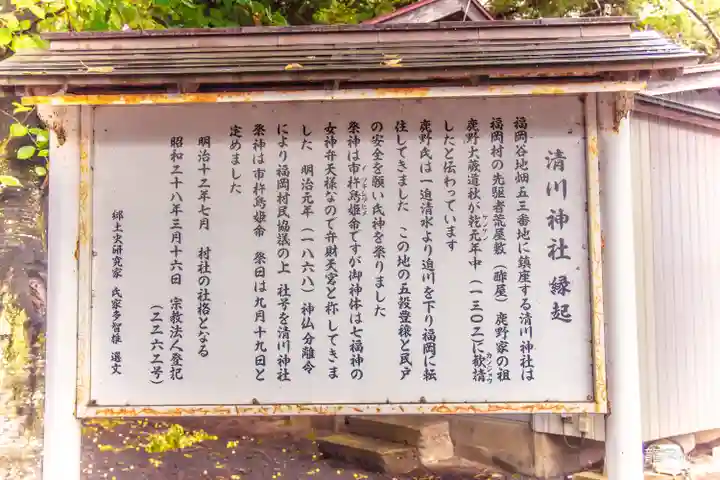 清川神社 縁起
福岡谷地畑五三番地に鎮座する清川神社は
福岡村の先駆者荒屋敷(酢屋)鹿野家の祖
鹿野大蔵道秋が乾元年中(一三〇二)に歓請
ケンゲン
カンジョウ
したと伝わっています
鹿野氏は一迫清水より迫川を下り福岡に転
住してきました この地の五穀豊穣と民戸
の安全を願い氏神を祭りました
祭神は市杵島姫命ですが御神体は七福神の
イツキシマヒメ
女神弁天様なので弁財天宮と称してきま
した 明治元年(一八六八)神仏分離令
により福岡村民協議の上 社号を清川神社
祭神は市杵島姫命 祭日は九月十九日と
定めました
明治十二年七月 村社の社格となる
昭和二十八年三月十六日 宗教法人登記
(二二六二号)
郷土史研究家 氏家多智雄 選文